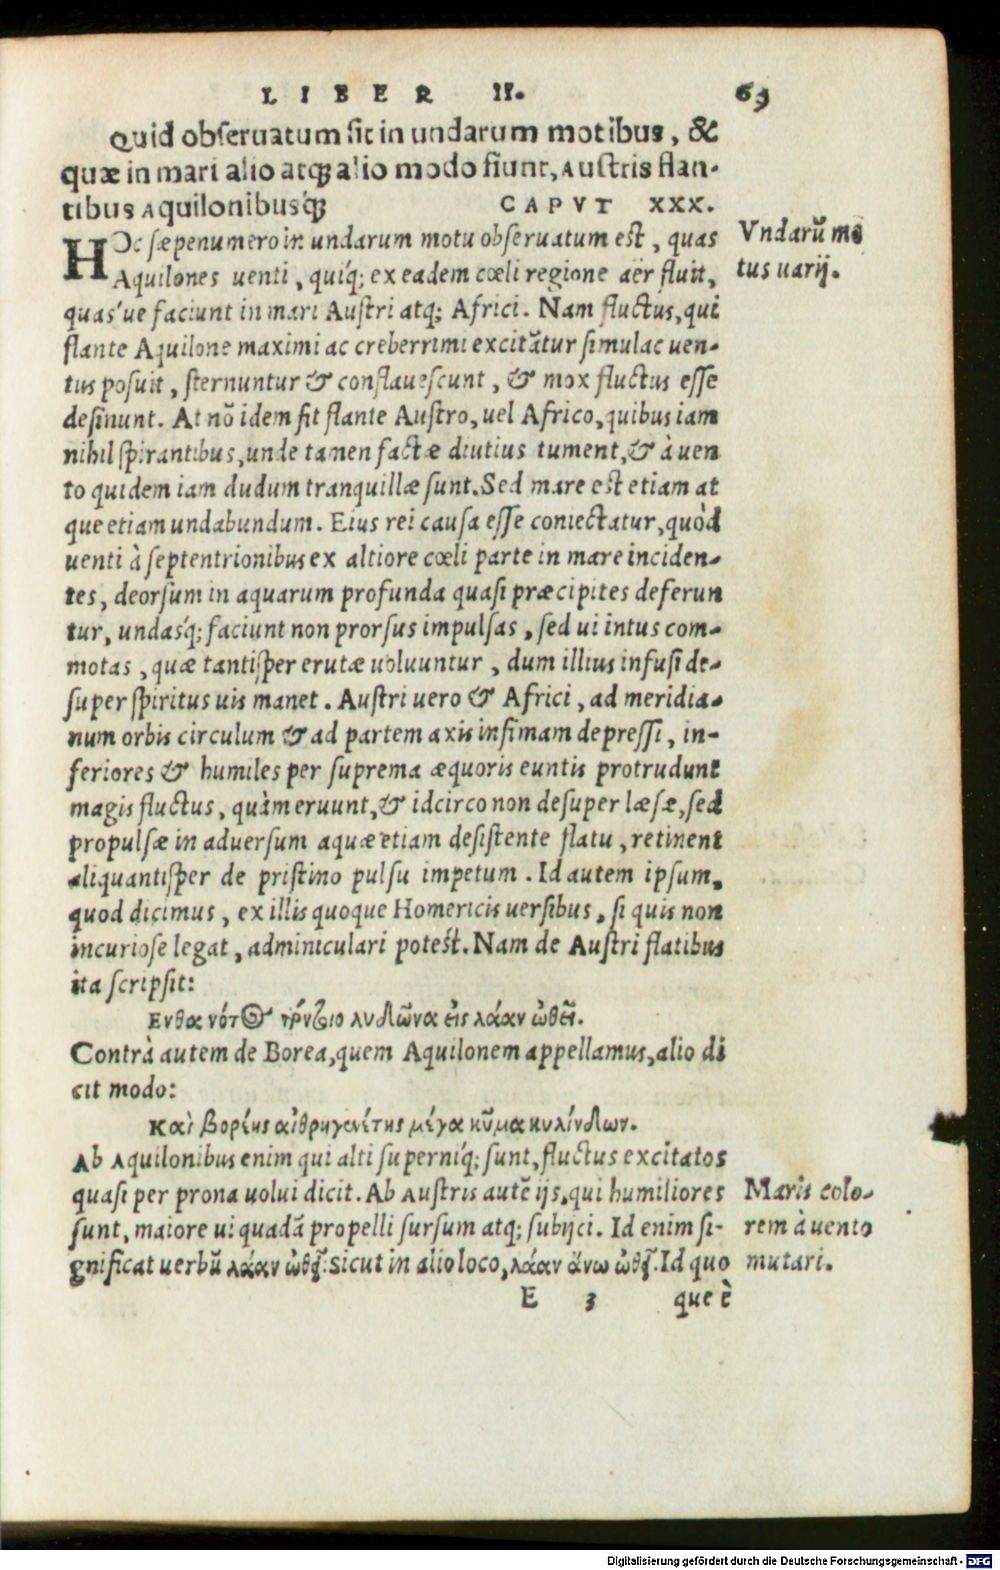 LIBER II. 69
Quid obseruatum sit in undarum motibus, &
quæ in mari alio atq; alio modo fiunt, Austris flan-
tibus Aquilonibusq́; CAPVT XXX.
HOc sæpenumero in undarum motu obseruatum est, quas
Vndarū mo
Aquilones uenti, quiq́; ex eadem cœli regione aër fluit,
tus uarij.
quas'ue faciunt in mari Austri atq; Africi. Nam fluctus, qui
flante Aquilone maximi ac creberrimi excitātur simulac uen-
tus posuit, sternuntur & conflauescunt, & mox fluctus esse
desinunt. At nō idem fit flante Austro, uel Africo, quibus iam
nihil spirantibus, unde tamen factæ diutius tument, & à uen
to quidem iam dudum tranquillæ sunt. Sed mare est etiam at
que etiam undabundum. Eius rei causa esse coniectatur, quòd
uenti à septentrionibus ex altiore cœli parte in mare inciden-
tes, deorsum in aquarum profunda quasi præcipites deferun
tur, undasq́; faciunt non prorsus impulsas, sed ui intus com-
motas, quæ tantisper erutæ uoluuntur, dum illius infusi de-
super spiritus uis manet. Austri uero & Africi, ad meridia-
num orbis circulum & ad partem axis infimam depressi, in-
feriores & humiles per suprema æquoris euntis protrudunt
magis fluctus, quàm eruunt, & idcirco non desuper læsæ, sed
propulsæ in aduersum aquæ etiam desistente flatu, retinent
aliquantisper de pristino pulsu impetum. Id autem ipsum,
quod dicimus, ex illis quoque Homericis uersibus, si quis non
incuriose legat, adminiculari potest. Nam de Austri flatibus
ita scripsit:
Ενθα νότος τρύζιο λυδῶνα εἰς λάαν ὠθεῖ.
Contrà autem de Borea, quem Aquilonem appellamus, alio di
cit modo:
Καὶ βορέης αἰθρηγενέτης μέγα κῦμα κυλίνδων.
Ab Aquilonibus enim qui alti superniq́; sunt, fluctus excitatos
quasi per prona uolui dicit. Ab Austris autē ijs, qui humiliores
Maris colo-
sunt, maiore ui quadā propelli sursum atq; subijci. Id enim si-
rem à uento
gnificat uerbū λάαν ὠθεῖ. Sicut in alio loco, λάαν ἄνω ὠθεῖ. Id quo
mutari.
E 3 que è
Digitalisierung gefördert durch die Deutsche Forschungsgemeinschaft - DFG